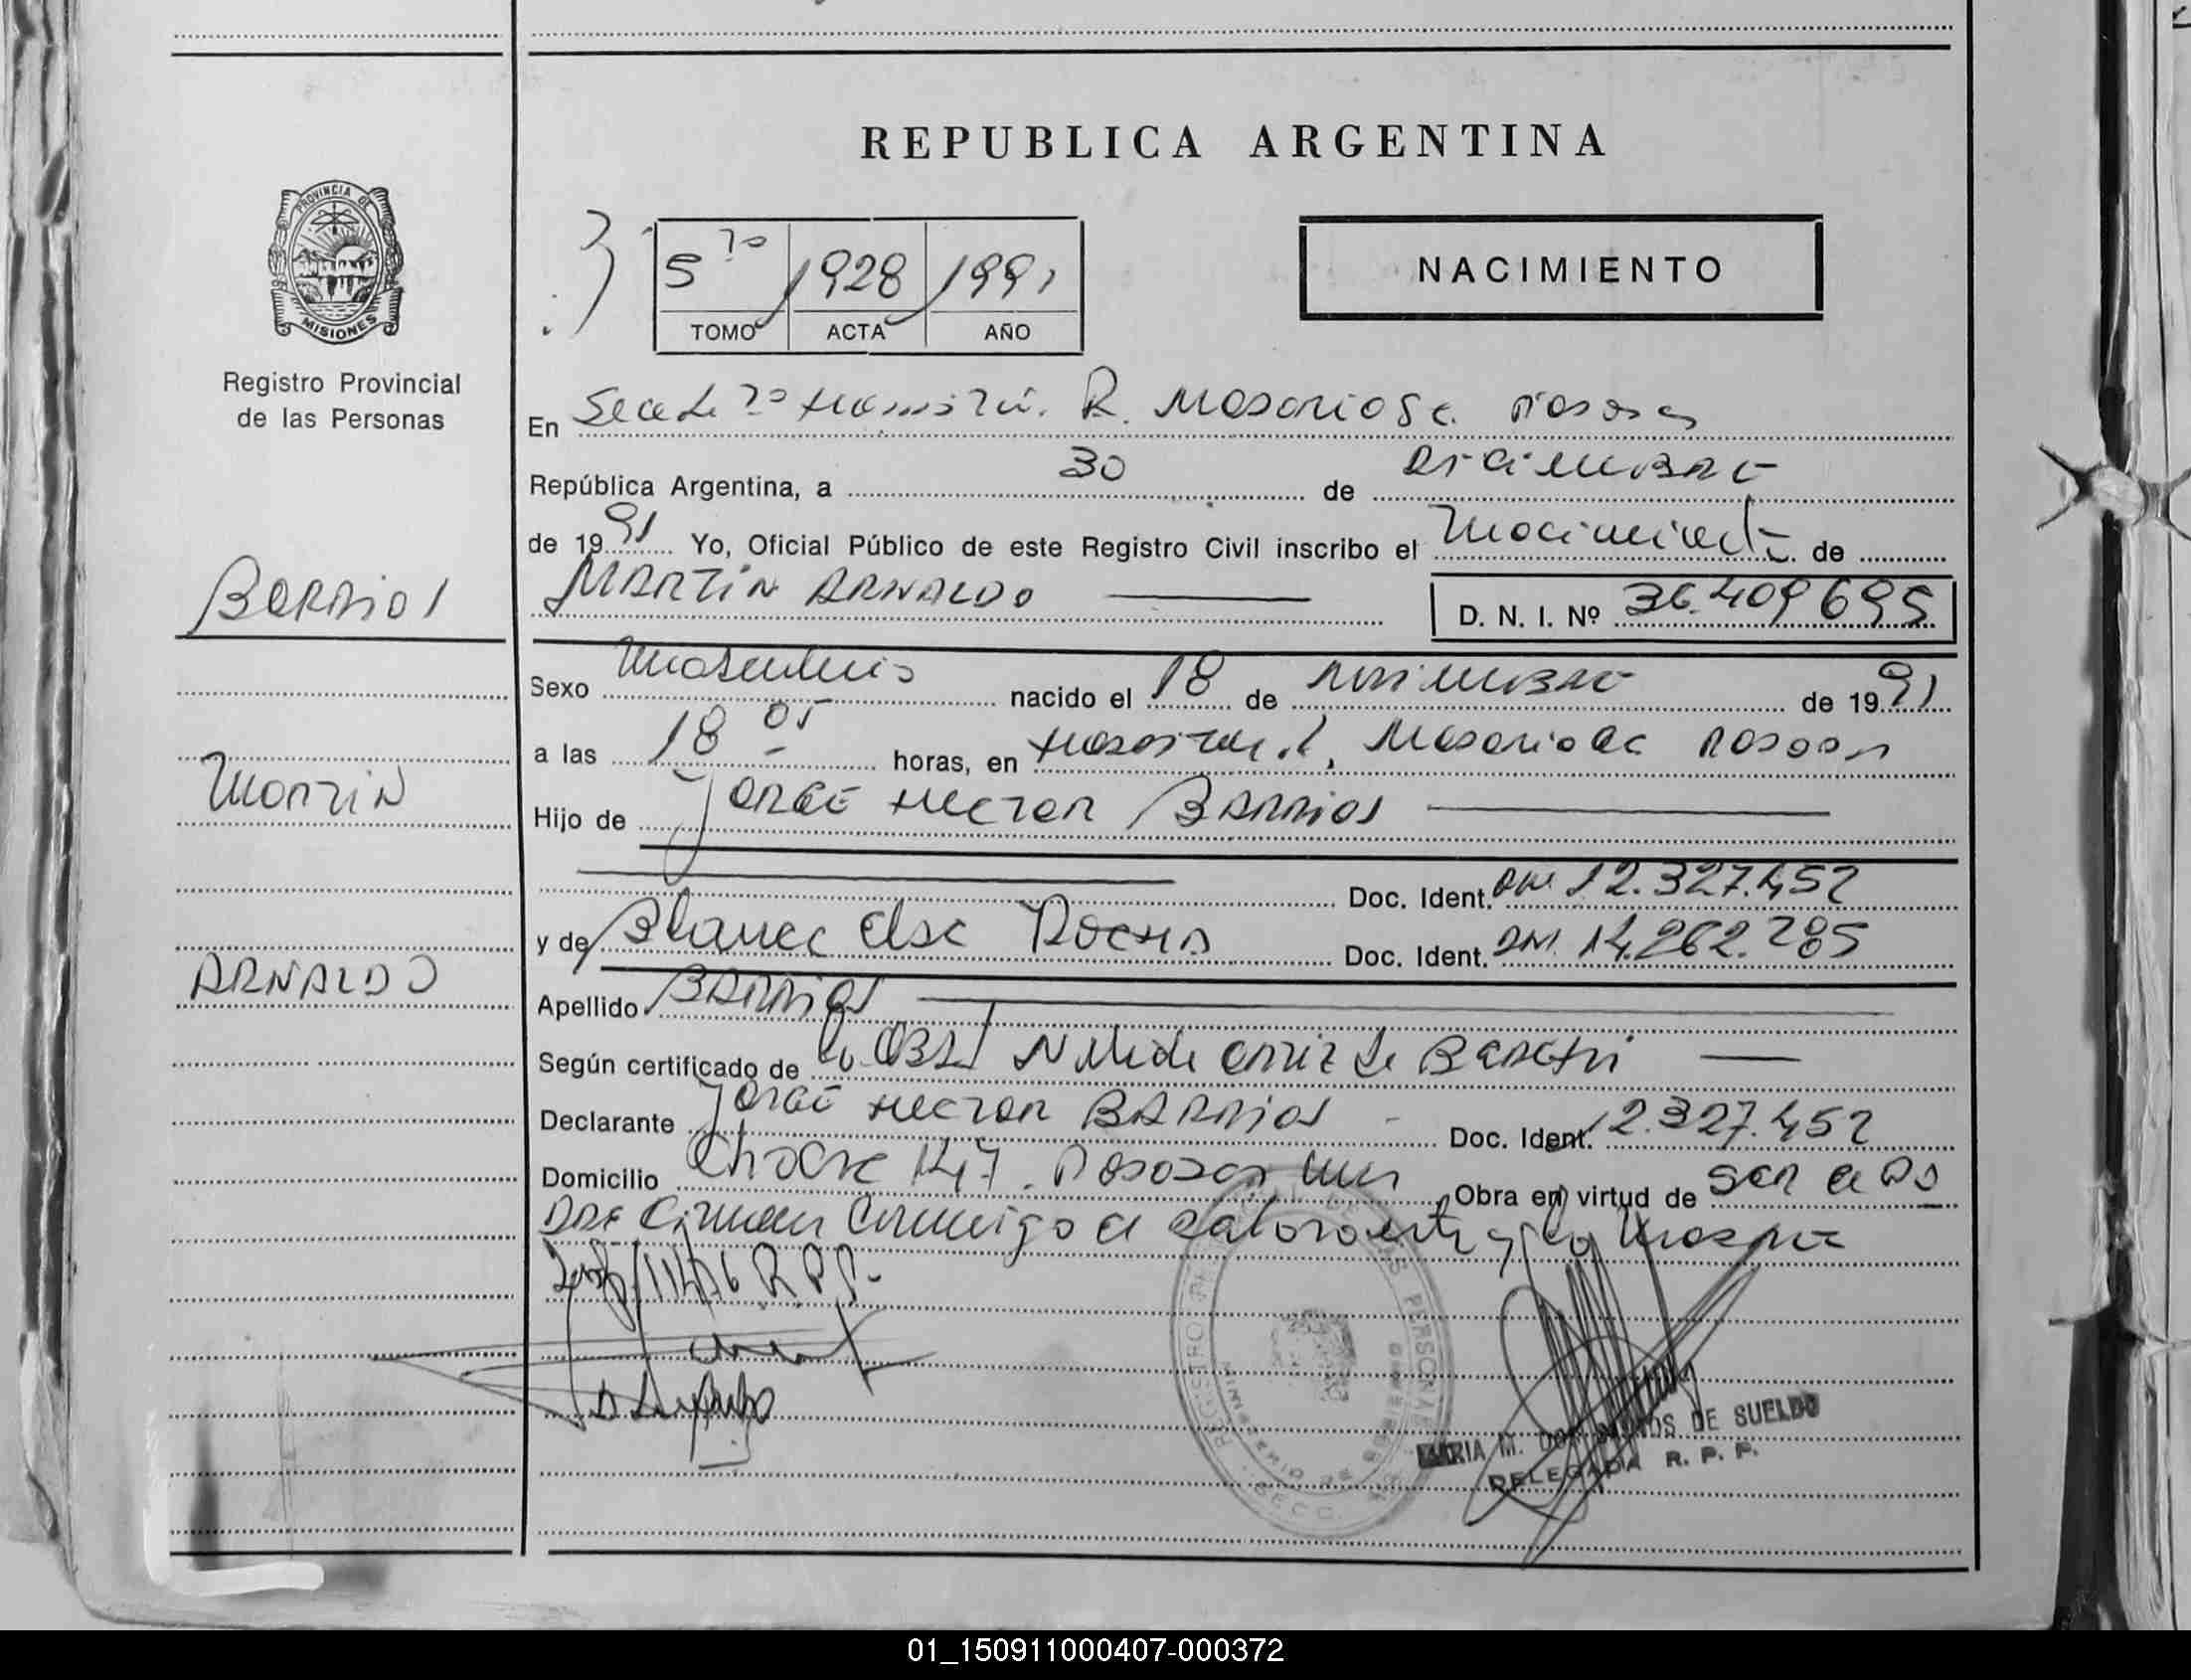 REPUBLICA ARGENTINA
PROVINCIA DE
MISIONES
Registro Provincial
de las Personas
5 TO 1928 1991
TOMO ACTA AÑO
NACIMIENTO
En R.
República Argentina, a 30 de DICIEMBRE
de 1991 Yo, Oficial Público de este Registro Civil inscribo el Nacimiento de
BARRIOS
MARTIN ARNALDO
D. N. I. Nº 36.409.695
Sexo Masculino nacido el 18 de NOVIEMBRE de 1991
a las 18 05 horas, en
MARTIN
Hijo de JORGE HECTOR BARRIOS
Doc. Ident. DNI. 12.327.452
y de Blanca Elsa ROCHA Doc. Ident. DNI. 14.262.285
ARNALDO
Apellido BARRIOS
Según certificado de la OBST de
Declarante JORGE HECTOR BARRIOS - Doc. Ident. 12.327.452
Domicilio 147. Posadas Mnes Obra en virtud de SER el PA
DRE Firman Conmigo el Declarante y la Madre
R.P.P.-
MARIA M. DE SUELDO
DELEGADA R. P. P.
01_150911000407-000372